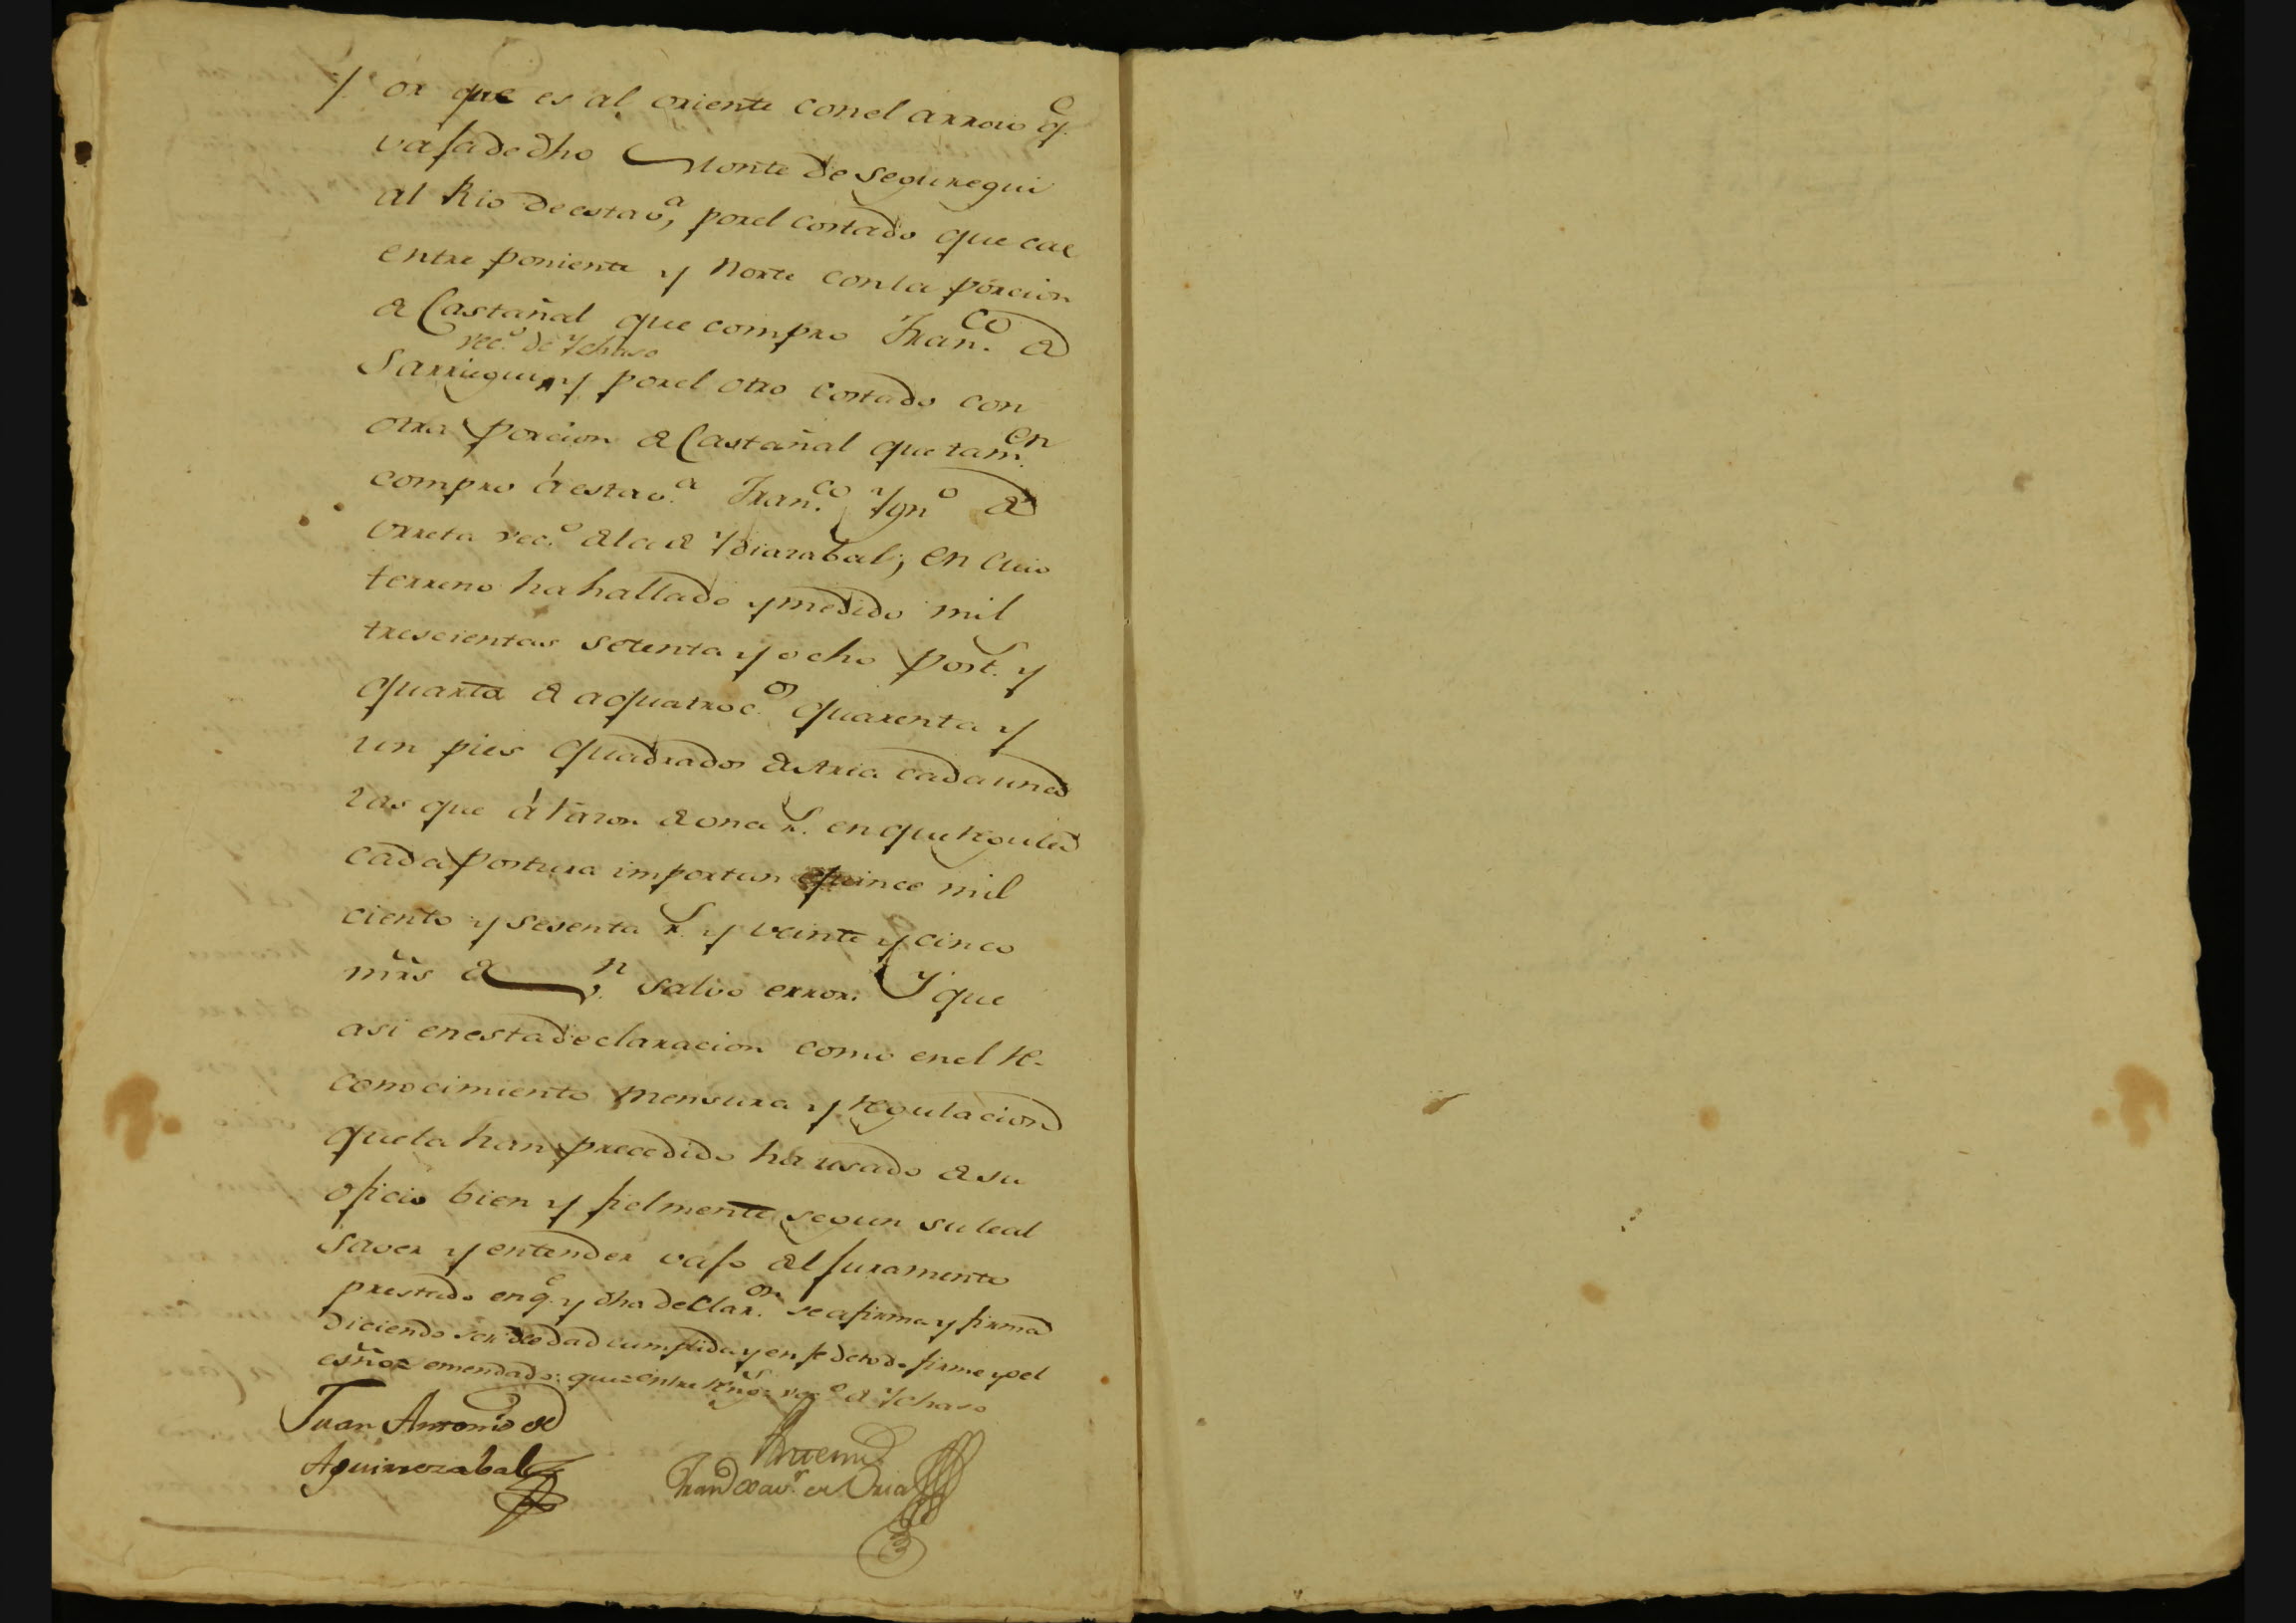 or que es al oriente con el arroio q.e
vaja de dho Monte de Seguregui
al Rio de esta v.a, por el costado que cae
entre poniente y Norte con la porcion
de Castañal que compro Fran.co de
vec.o de Ychaso
Sarriegui, y por el otro costado con
otra porcion de Castañal que tam.en
compro á esta v.a Fran.co Ygn.o de
Urreta vec.o de la de Ydiazabal; en cuio
terreno ha hallado y medido mil
trescientas setenta y ocho post.s y
quarta de a quatroc.os quarenta y
un pies quadrados de Area cada una
las que á razon de once r.s en que regula
cada postura importan quince mil
ciento y sesenta r.s y veinte y cinco
mrs de v.n salvo error. Y que
asi en esta declaracion como en el re-
conocimiento mensura y regulacion
que la han precedido ha usado de su
oficio bien y fielmente segun su leal
saver y entender vajo del juramento
prestado en q.e y dha declar.on se afirma y firma
diciendo ser de edad cumplida y en fe de todo firme yo el
esño= emendado: que= entre reng.s vec.o de Ychaso
Juan Antonio de
Aguirrezabal
Antemi
Fran.co Xav.r de Oria